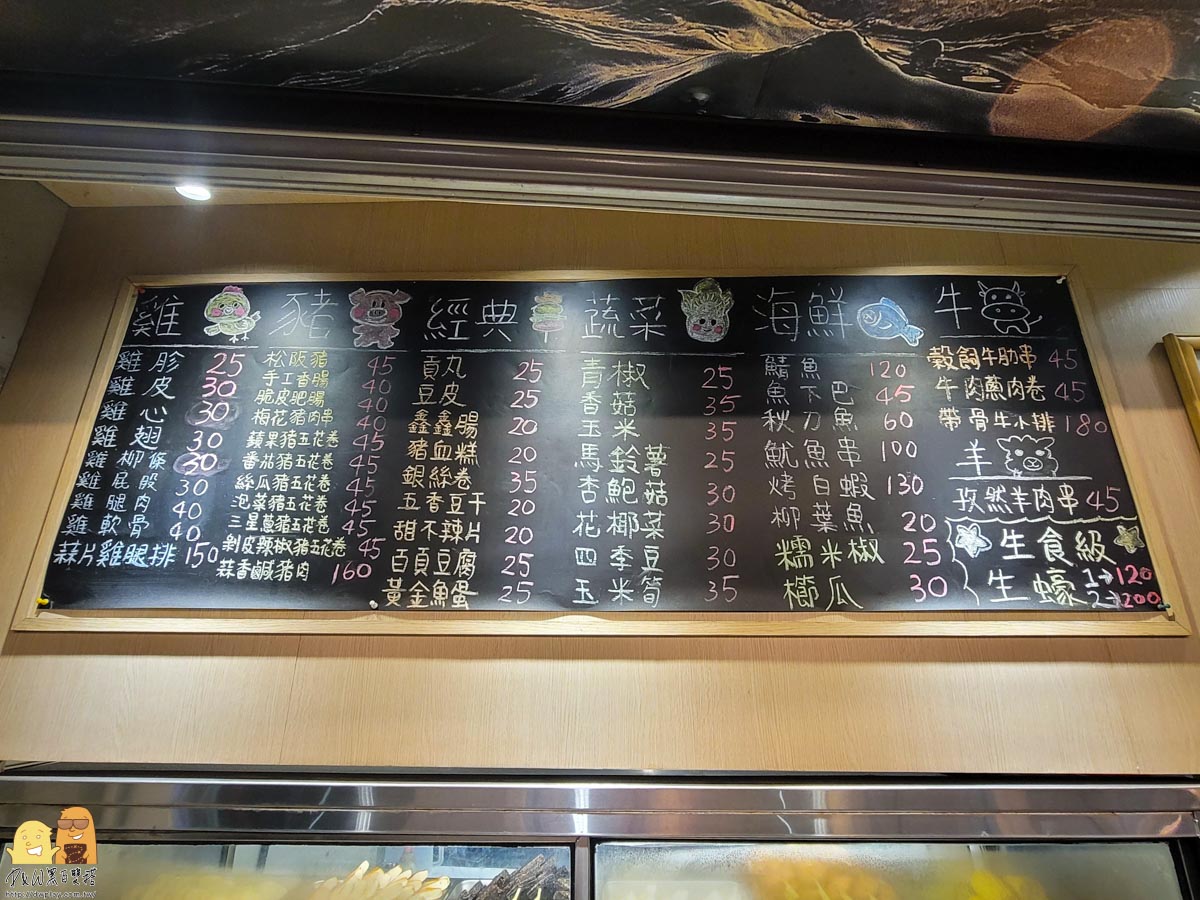 雞
雞胗 25
雞皮 30
雞心 30
雞翅 30
雞柳條 30
雞屁股 30
雞腿肉 40
雞軟骨 40
蒜片雞腿排 150
豬
松阪豬 45
手工香腸 40
脆皮肥腸 40
梅花豬肉串 40
蘋果豬五花卷 45
番茄豬五花卷 45
絲瓜豬五花卷 45
泡菜豬五花卷 45
三星蔥豬五花卷 45
剝皮辣椒豬五花卷 45
蒜香鹹豬肉 160
經典
貢丸 25
豆皮 25
鑫鑫腸 20
豬血糕 20
銀絲卷 35
五香豆干 20
甜不辣片 20
百頁豆腐 25
黃金魚蛋 25
蔬菜
青椒 25
香菇 35
玉米 35
馬鈴薯 25
杏鮑菇 30
花椰菜 30
四季豆 30
玉米筍 35
海鮮
鯖魚 120
魚下巴 45
秋刀魚 60
魷魚串 100
烤白蝦 130
柳葉魚 20
糯米椒 25
櫛瓜 30
牛
穀飼牛肋串 45
牛肉蔥肉卷 45
帶骨牛小排 180
羊
孜然羊肉串 45
生食級
生蠔 1→120
2→200
http://dwplay.com.tw/